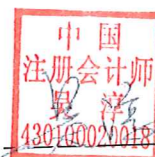 中国
注册会计师
430100020018